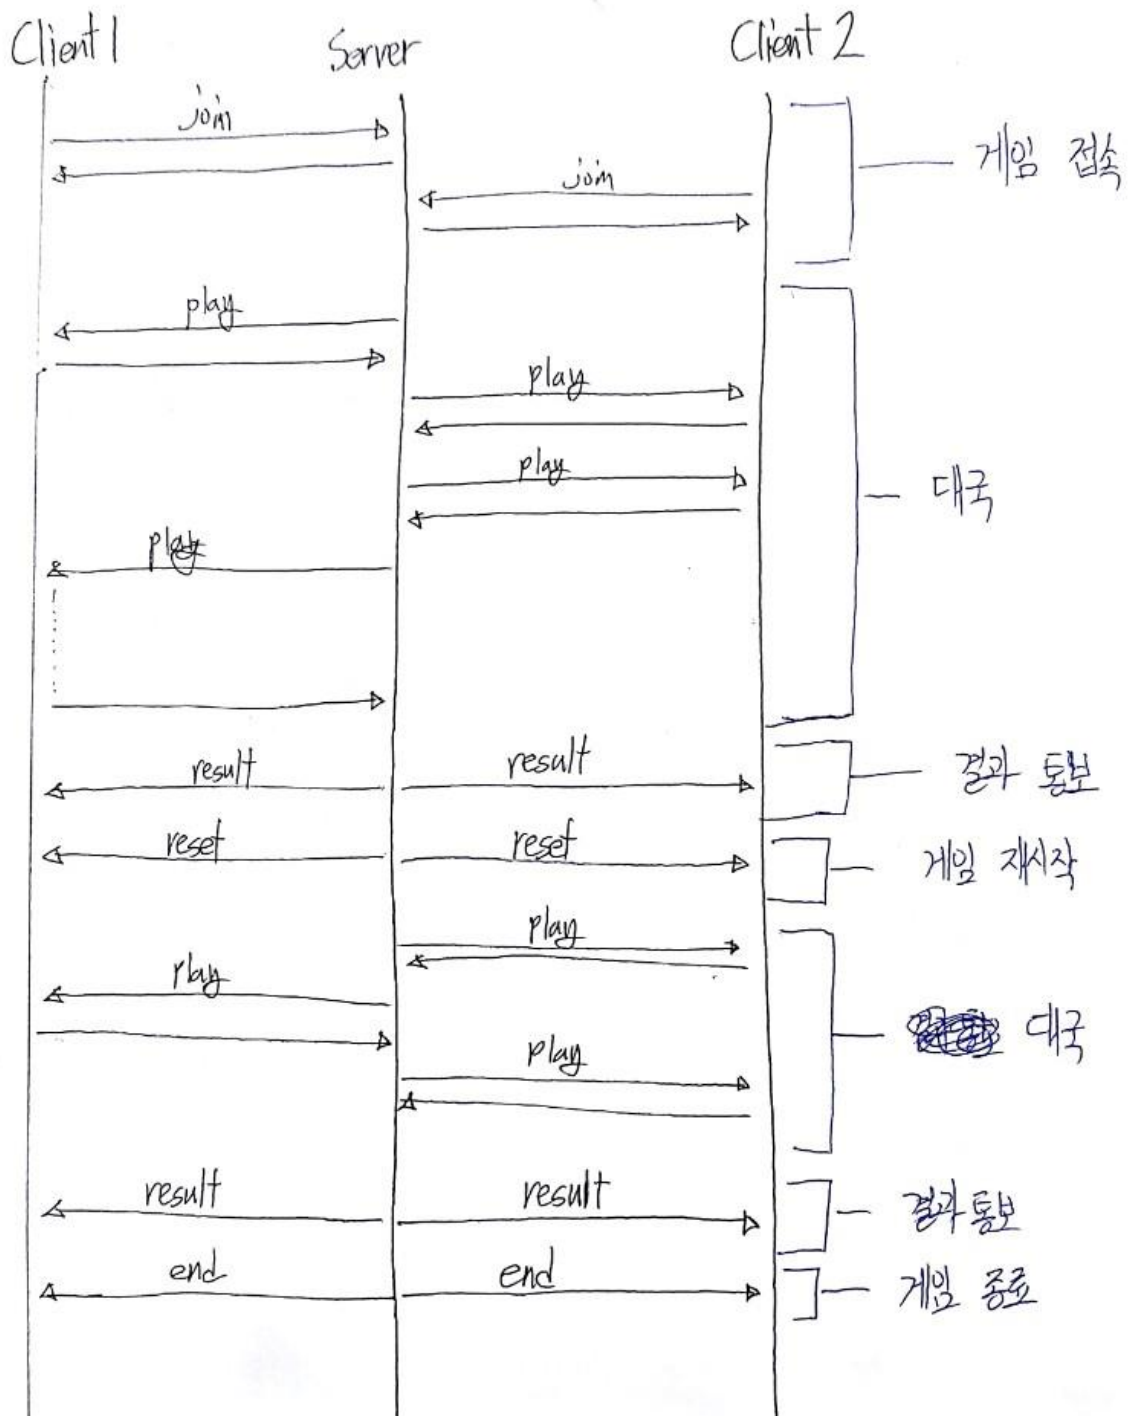 Client 1 Server Client 2
join
게임 접속
join
play
play
play
대국
play
result result 결과 통보
reset reset 게임 재시작
play
play
대국
play
result result 결과 통보
end end 게임 종료